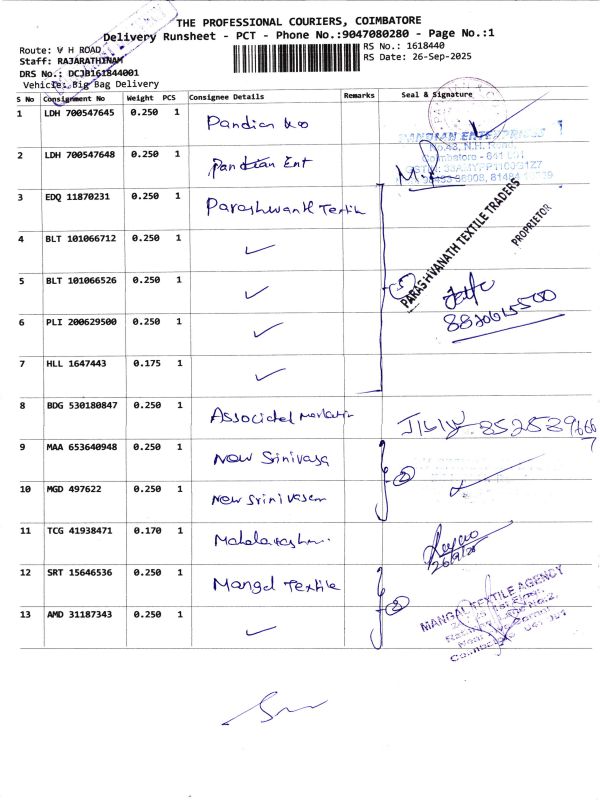 THE PROFESSIONAL COURIERS, COIMBATORE
Delivery Runsheet - PCT - Phone No.:9047080280 - Page No.:1
Route: V H ROAD
RS No.: 1618440
Staff: RAJARATHINAM
RS Date: 26-Sep-2025
DRS No.: DCJB161844001
Vehicle: Big Bag Delivery
S No Consignment No Weight PCS Consignee Details Remarks Seal & Signature
1 LDH 700547645 0.250 1 Pandian
2 LDH 700547648 0.250 1 Pandian Ent
PANDIAN ENTERPRISES
No.43, N.H. Road,
Coimbatore - 641 001
3 EDQ 11870231 0.250 1 Parashwanth Textile
4 BLT 101066712 0.250 1
PARASHVANATH TEXTILE TRADERS
PROPRIETOR
5 BLT 101066526 0.250 1
5
6 PLI 200629500 0.250 1
7 HLL 1647443 0.175 1
8 BDG 530180847 0.250 1 Associated
9 MAA 653640948 0.250 1 New Srinivasa
2
10 MGD 497622 0.250 1 New Srinivasa
11 TCG 41938471 0.170 1
26/9/25
12 SRT 15646536 0.250 1 Mangal Textile
2
13 AMD 31187343 0.250 1
MANGAL TEXTILE AGENCY